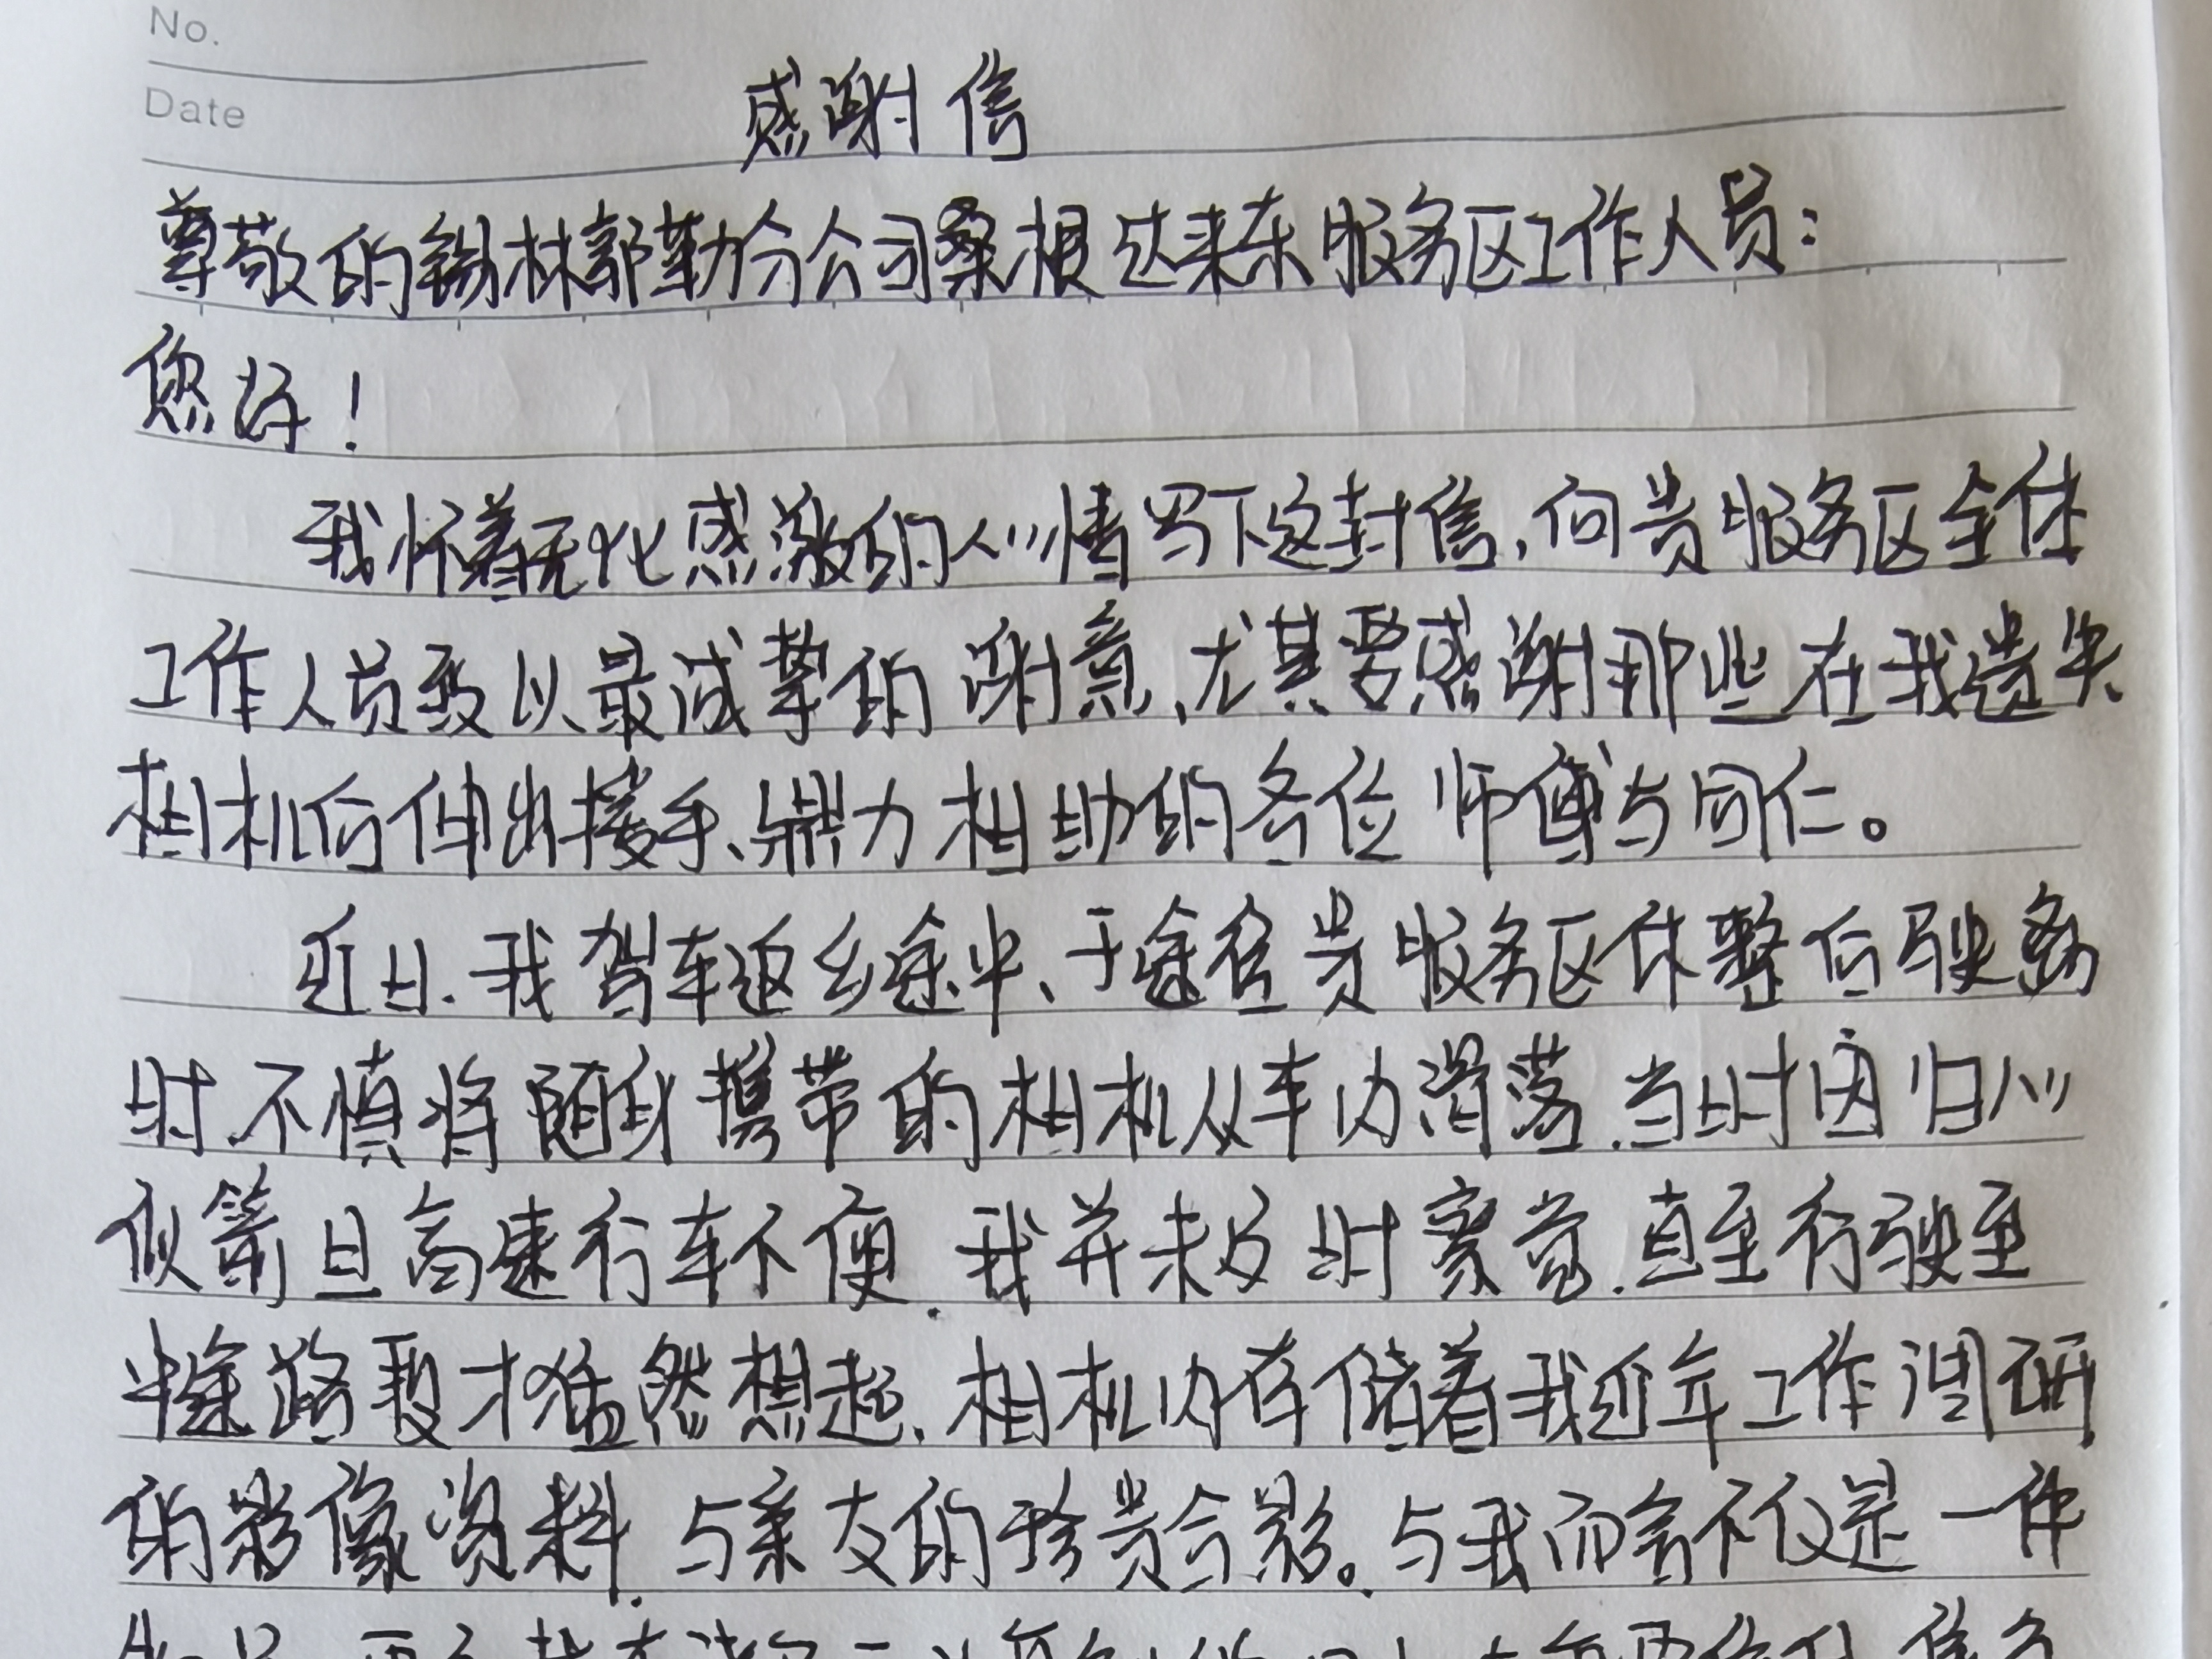 No.
Date
感谢信
尊敬的锡林郭勒分公司桑根达来东服务区工作人员:
您好!
我怀着无比感激的心情写下这封信,向贵服务区全体
工作人员致以最诚挚的谢意、尤其要感谢那些在我遗失
相机后伸出援手、鼎力相助的各位师傅与同仁。
近日.我驾车返乡途中、于途径贵服务区休整后驶离
时.不慎将随身携带的相机从车内滑落.当时因归心
似箭且高速行车不便.我并未及时察觉.直至行驶至
半途路段才猛然想起、相机内存储着我近年工作调研
的影像资料.与亲友的珍贵合影。与我而言不仅是一件